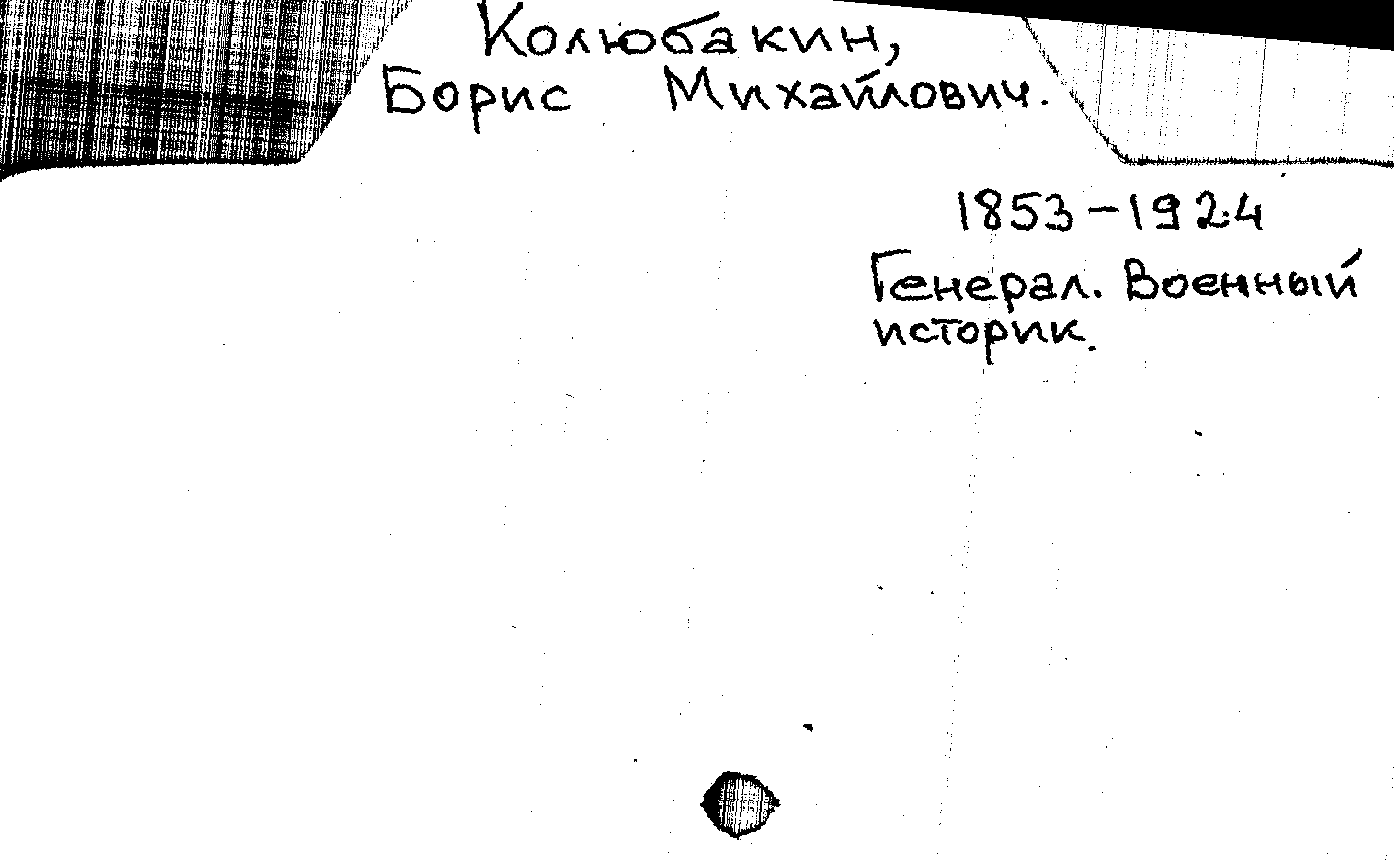 Колюбакин,
Борис Михайлович.
1853-1924
Генерал. Военный
историк.